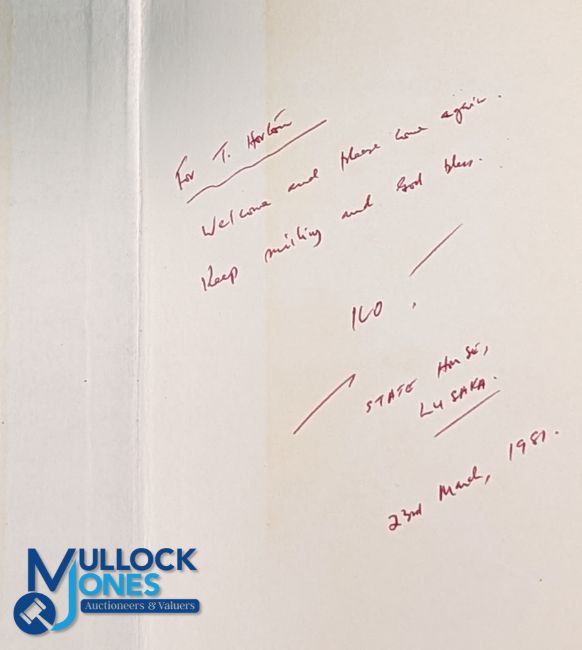 For T. Horton
Welcome and please come again.
Keep smiling and God bless.
STATE HOUSE,
LUSAKA.
23rd March, 1981.
MULLOCK
JONES
Auctioneers & Valuers